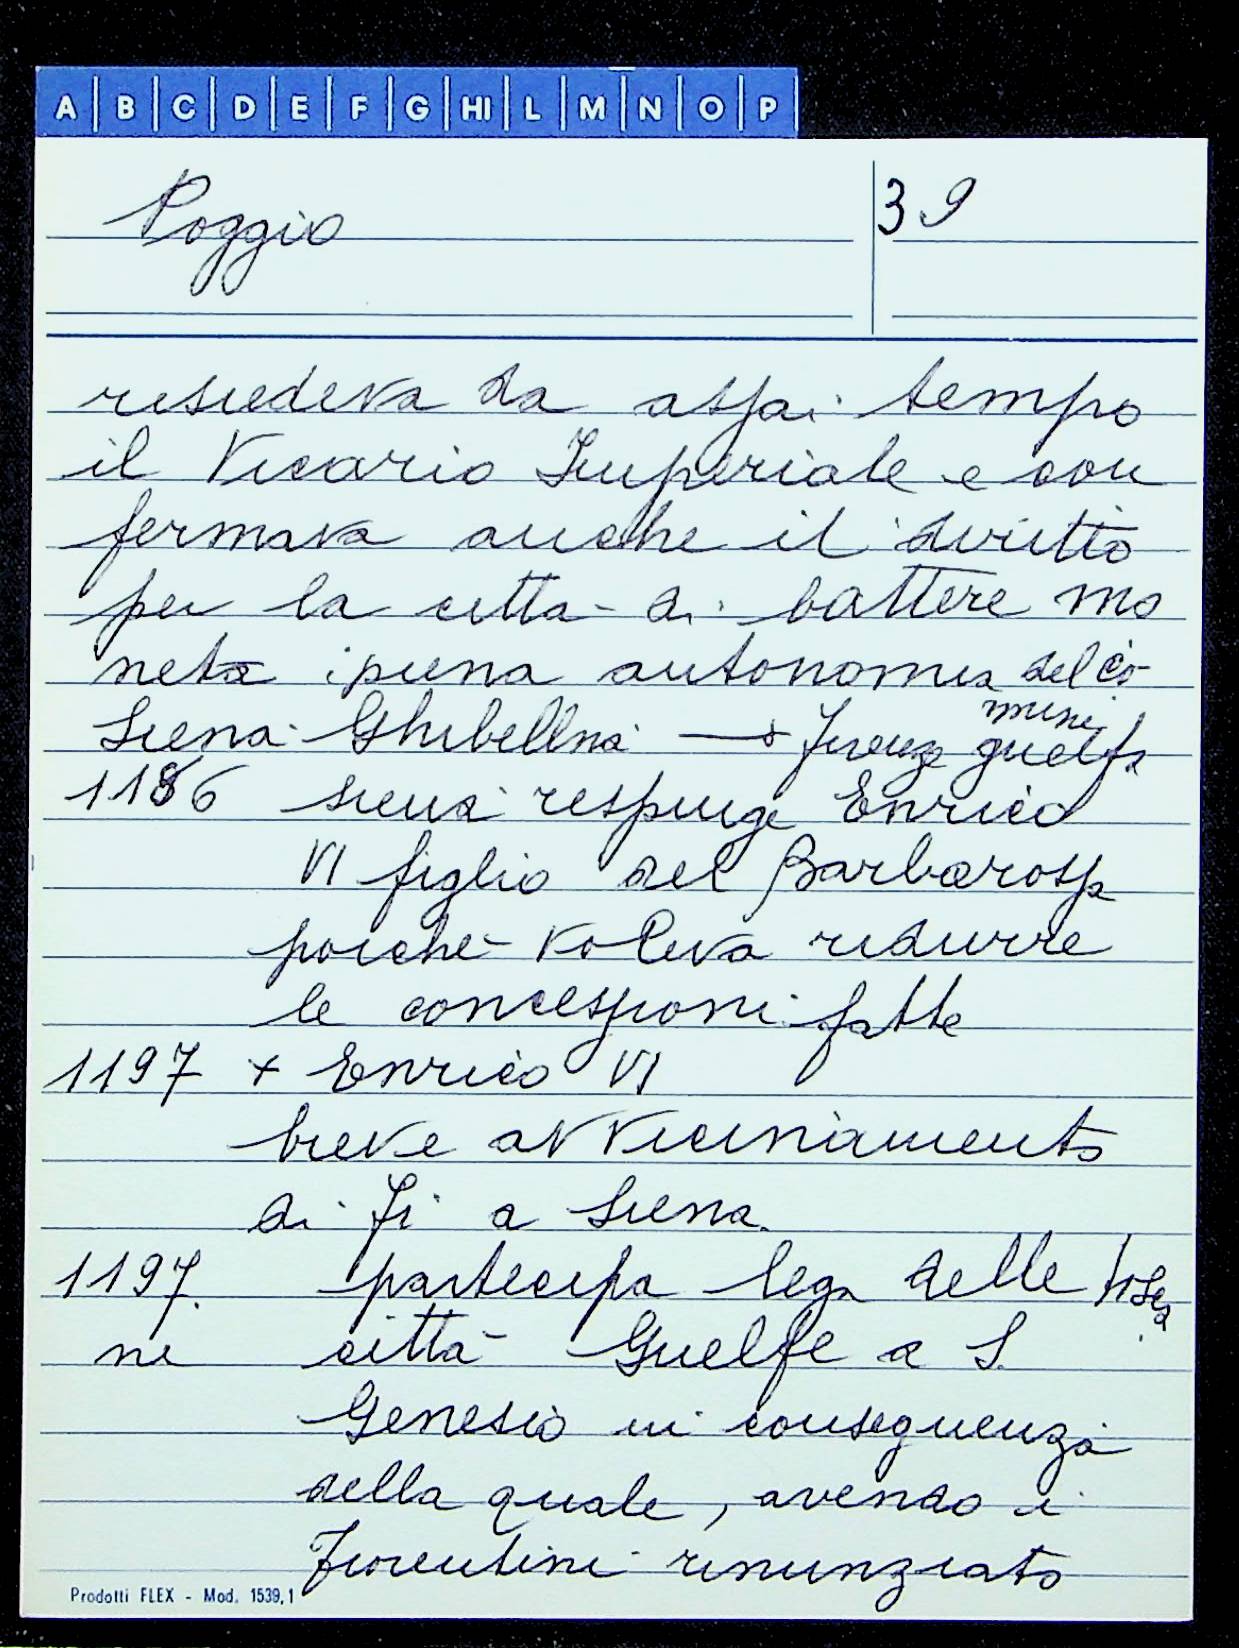 A B C D E F G HI L M N O P
Poggio
39
risiedeva da assai tempo
il Vicario Imperiale e con
fermava anche il diritto
per la città di battere mo
neta, piena autonomia del co-
muni
Siena Ghibellina → Firenze guelfa
1186 Siena respinge Enrico
VI figlio del Barbarossa
poiché voleva ridurre
le concessioni fatte
1197 + Enrico VI
breve avvicinamento
di Fi a Siena.
1197. partecipa lega delle
ni città Guelfe a S.
Genesio in conseguenza
della quale, avendo i
Fiorentini rinunziato
Prodotti FLEX - Mod. 1539,1